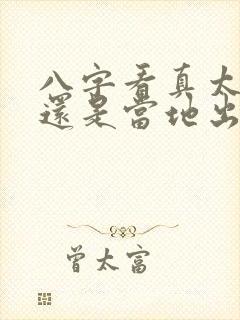 八字看真太
還是當地出
曾太富